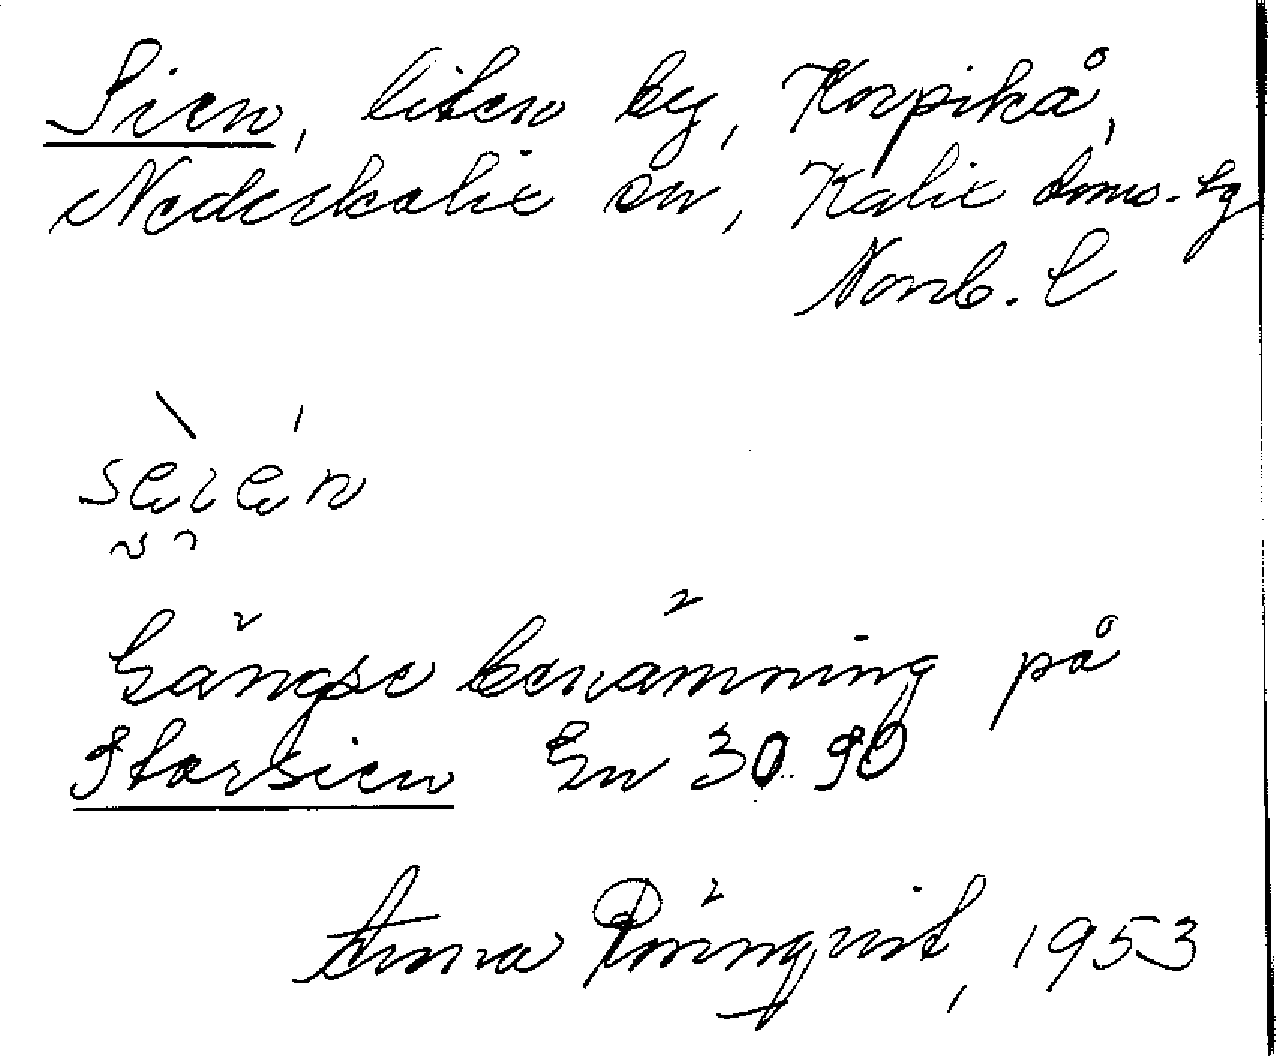 Sien, liten by, Korpikå,
Nederkalix sn, Kalix doms. hg
Norrb. l
sèién
Gängse benämning på
Storsien Gn 30.90
Anna Rönnqvist, 1953